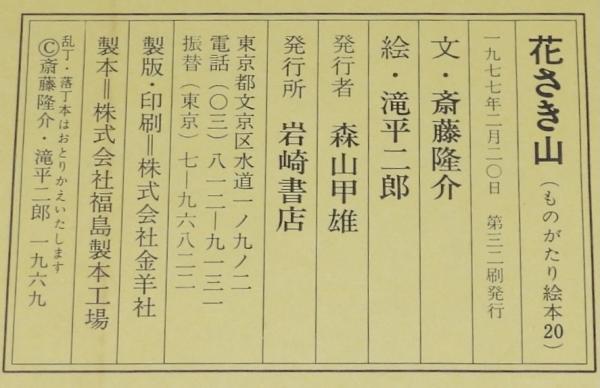 花さき山（ものがたり絵本20）
一九七七年二月二〇日　第三二刷発行
文・斎藤隆介
絵・滝平二郎
発行者　森山甲雄
発行所　岩崎書店
東京都文京区水道一ノ九ノ二
電話（〇三）八一二―九一三一
振替（東京）七―九六八二二
製版・印刷＝株式会社金羊社
製本＝株式会社福島製本工場
乱丁・落丁本はおとりかえいたします
©斎藤隆介・滝平二郎　一九六九